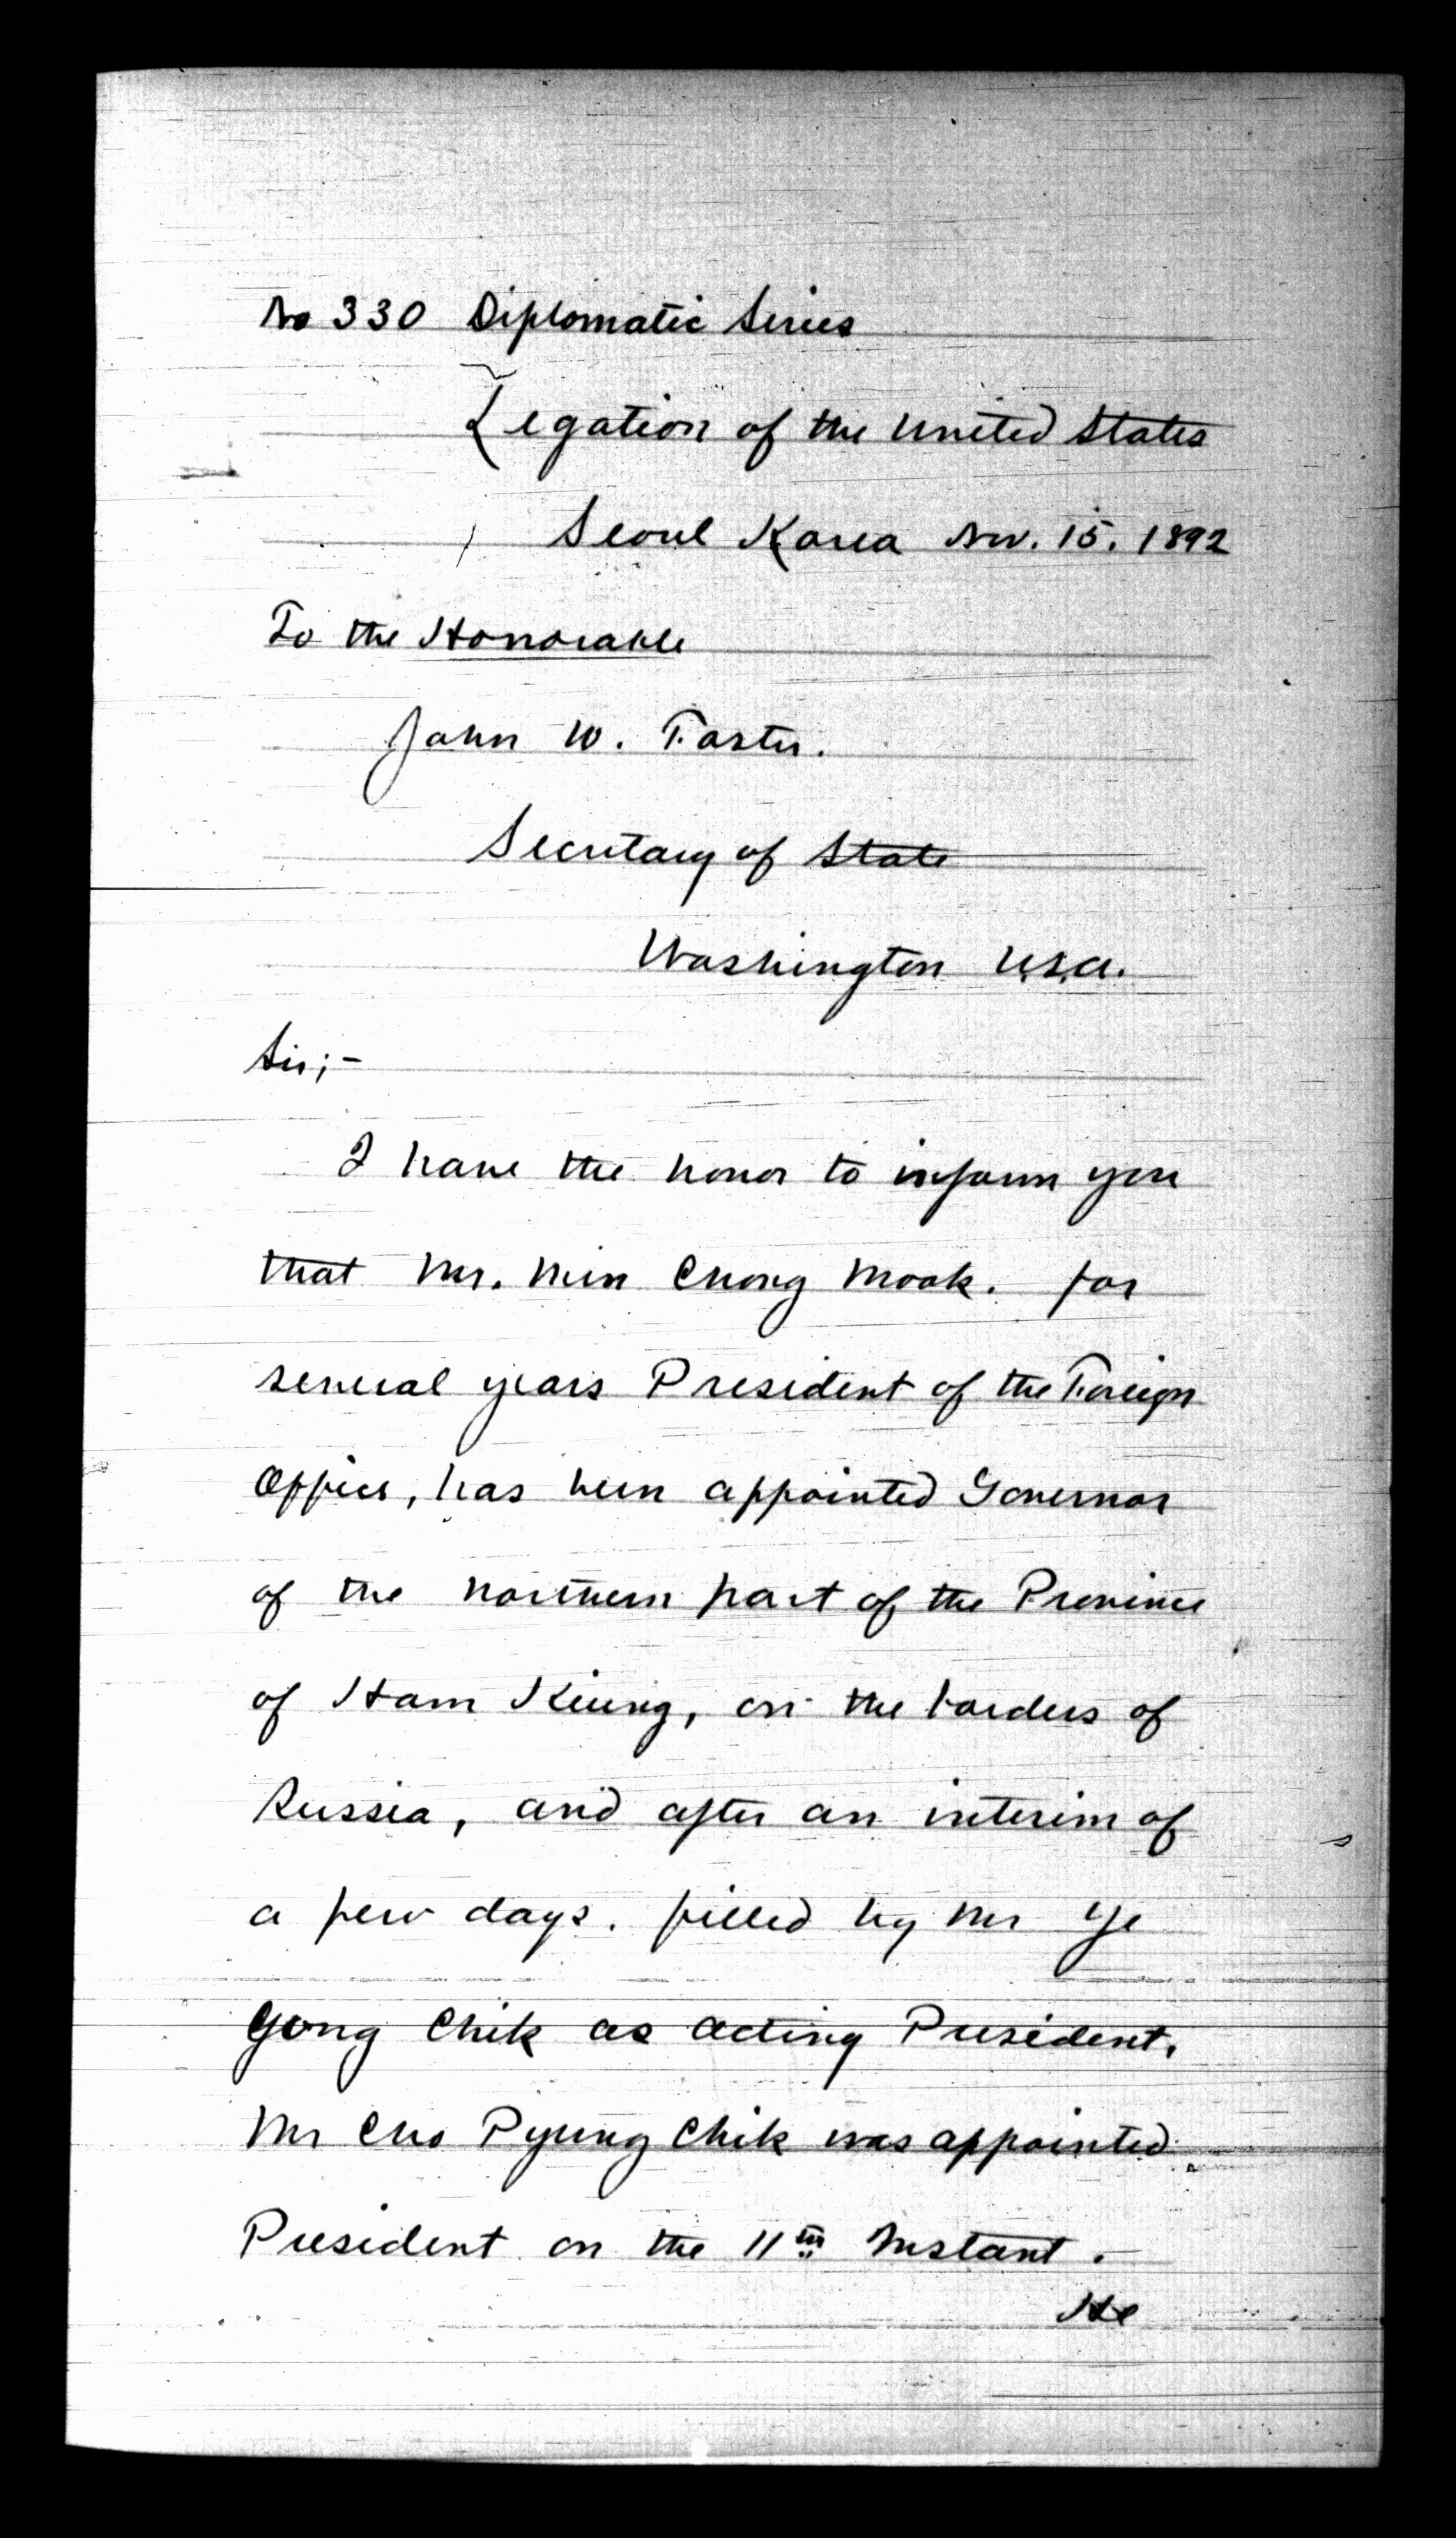 No 330 Diplomatic Series
Legation of the United States
Seoul Korea Nov. 15. 1892
To the Honorable
John W. Foster.
Secretary of State
Washington U.S.A.
Sir;-
I have the honor to inform you
that Mr. Min Chong Mook. for
several years President of the Foreign
Office, has been appointed Governor
of the northern part of the Province
of Ham Kiung, on the borders of
Russia, and after an interim of
a few days. filled by Mr Ye
Yong Chik as acting President,
Mr Cho Pyung Chik was appointed
President on the 11th Instant.
He